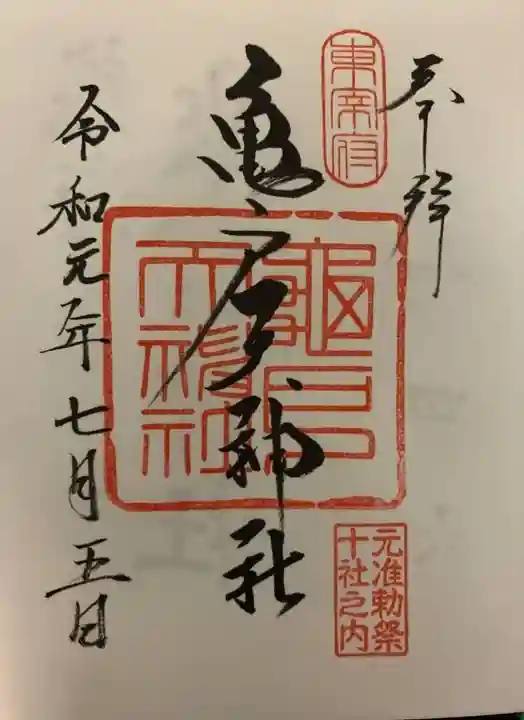 奉拝
東宰府
亀戸天神社
元准勅祭
十社之内
令和元年七月五日